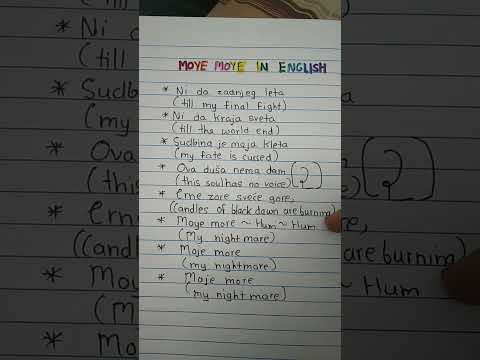 MOYE MOYE IN ENGLISH
* Ni da zadnjeg leta
(till my final fight)
* Ni da kraja sveta
(till the world end)
* Sudbina je moja kleta
(my fate is cursed)
* Ova duša nema dam
(this soul has no voice)
* Crne zore svece gore,
(candles of black dawn are burnim
* Moye more ~ Hum ~ Hum
(My night mare)
* Moje more
(my nightmare)
* Moje more
(my night mare)